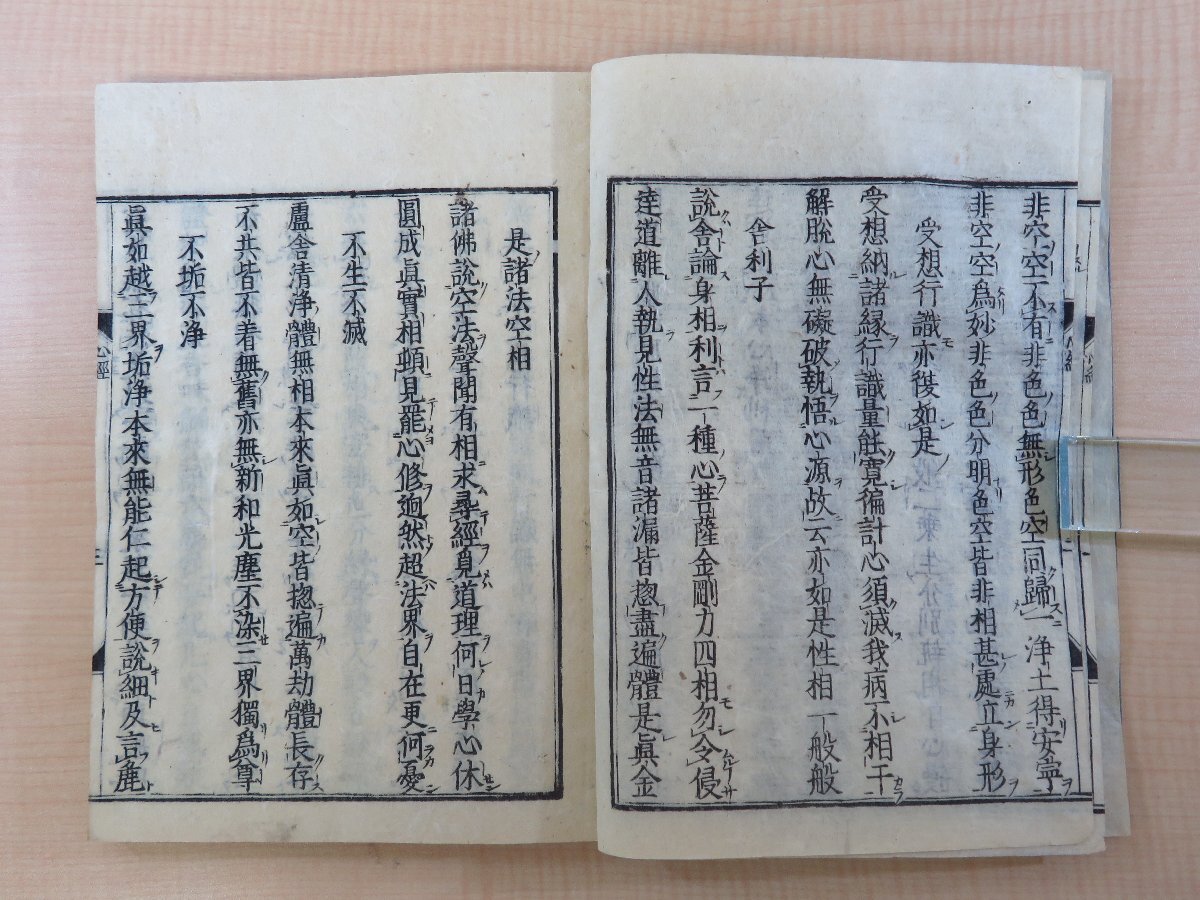 非空空不有非色色無形色空同歸一浄土得安寧
非空空爲妙非色色分明色空皆非相甚處立身形
受想行識亦復如是
受想納諸縁行識量能寛徧計心須滅我病不相干
解脱心無礙破執悟心源故云亦如是性相一般般
舎利子
說舎論身相利言一種心菩薩金剛力四相勿令侵
達道離人執見性法無音諸漏皆揔盡遍體是眞金
是諸法空相
諸佛說空法聲聞有相求尋經覓道理何日學心休
圓成眞實相頓見罷心修逈然超法界自在更何憂
不生不滅
盧舎清浄體無相本來眞如空皆揔遍萬劫體長存
不共皆不着無舊亦無新和光塵不染三界獨爲尊
不垢不浄
眞如越三界垢浄本來無能仁起方便說細及言麁
心經